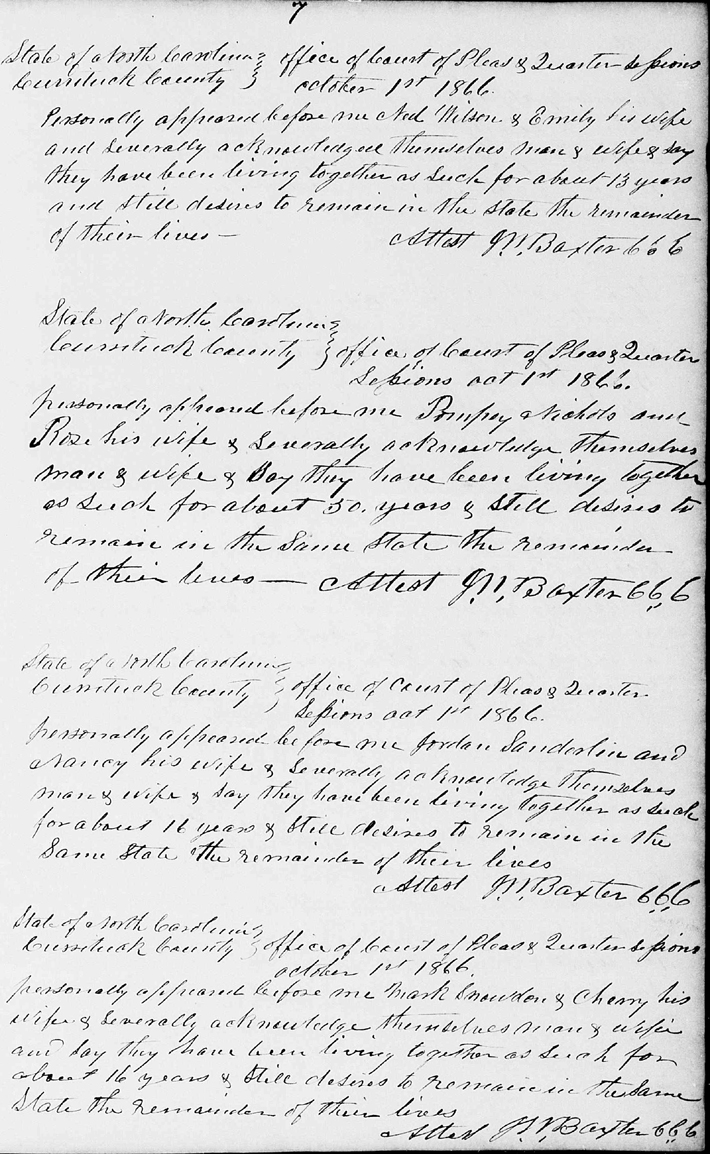 7
State of North Carolina } office of Court of Pleas & Quarter Sessions
Currituck County } october 1st 1866.
Personally appeared before me Ned Wilson & Emily his wife
and Severally acknowledged themselves man & wife & say
they have been living together as Such for about 13 years
and still desires to remain in the state the remainder
of their lives — Attest J.V. Baxter C C C
State of North Carolina }
Currituck County } office of Court of Pleas & Quarter
Sessions oct 1st 1866.
personally appeared before me Pompey Nichols and
Rose his wife & Severally acknowledge themselves
man & wife & Say they have been living together
as such for about 50 years & still desires to
remain in the Same State the remainder
of their lives — Attest J.V. Baxter C C C
State of North Carolina }
Currituck County } office of Court of Pleas & Quarter
Sessions oct 1st 1866.
personally appeared before me Jordan Sanderlin and
Nancy his wife & Severally acknowledge themselves
man & wife & Say they have been living together as Such
for about 16 years & Still desires to remain in the
Same State the remainder of their lives
Attest J.V. Baxter C C C
State of North Carolina }
Currituck County } office of Court of Pleas & Quarter Sessions
october 1st 1866.
personally appeared before me Mark Snowdon & Cherry his
wife & Severally acknowledge themselves man & wife
and Say they have been living together as Such for
about 16 years & Still desires to remain in the Same
State the remainder of their lives
Attest J.V. Baxter C C C